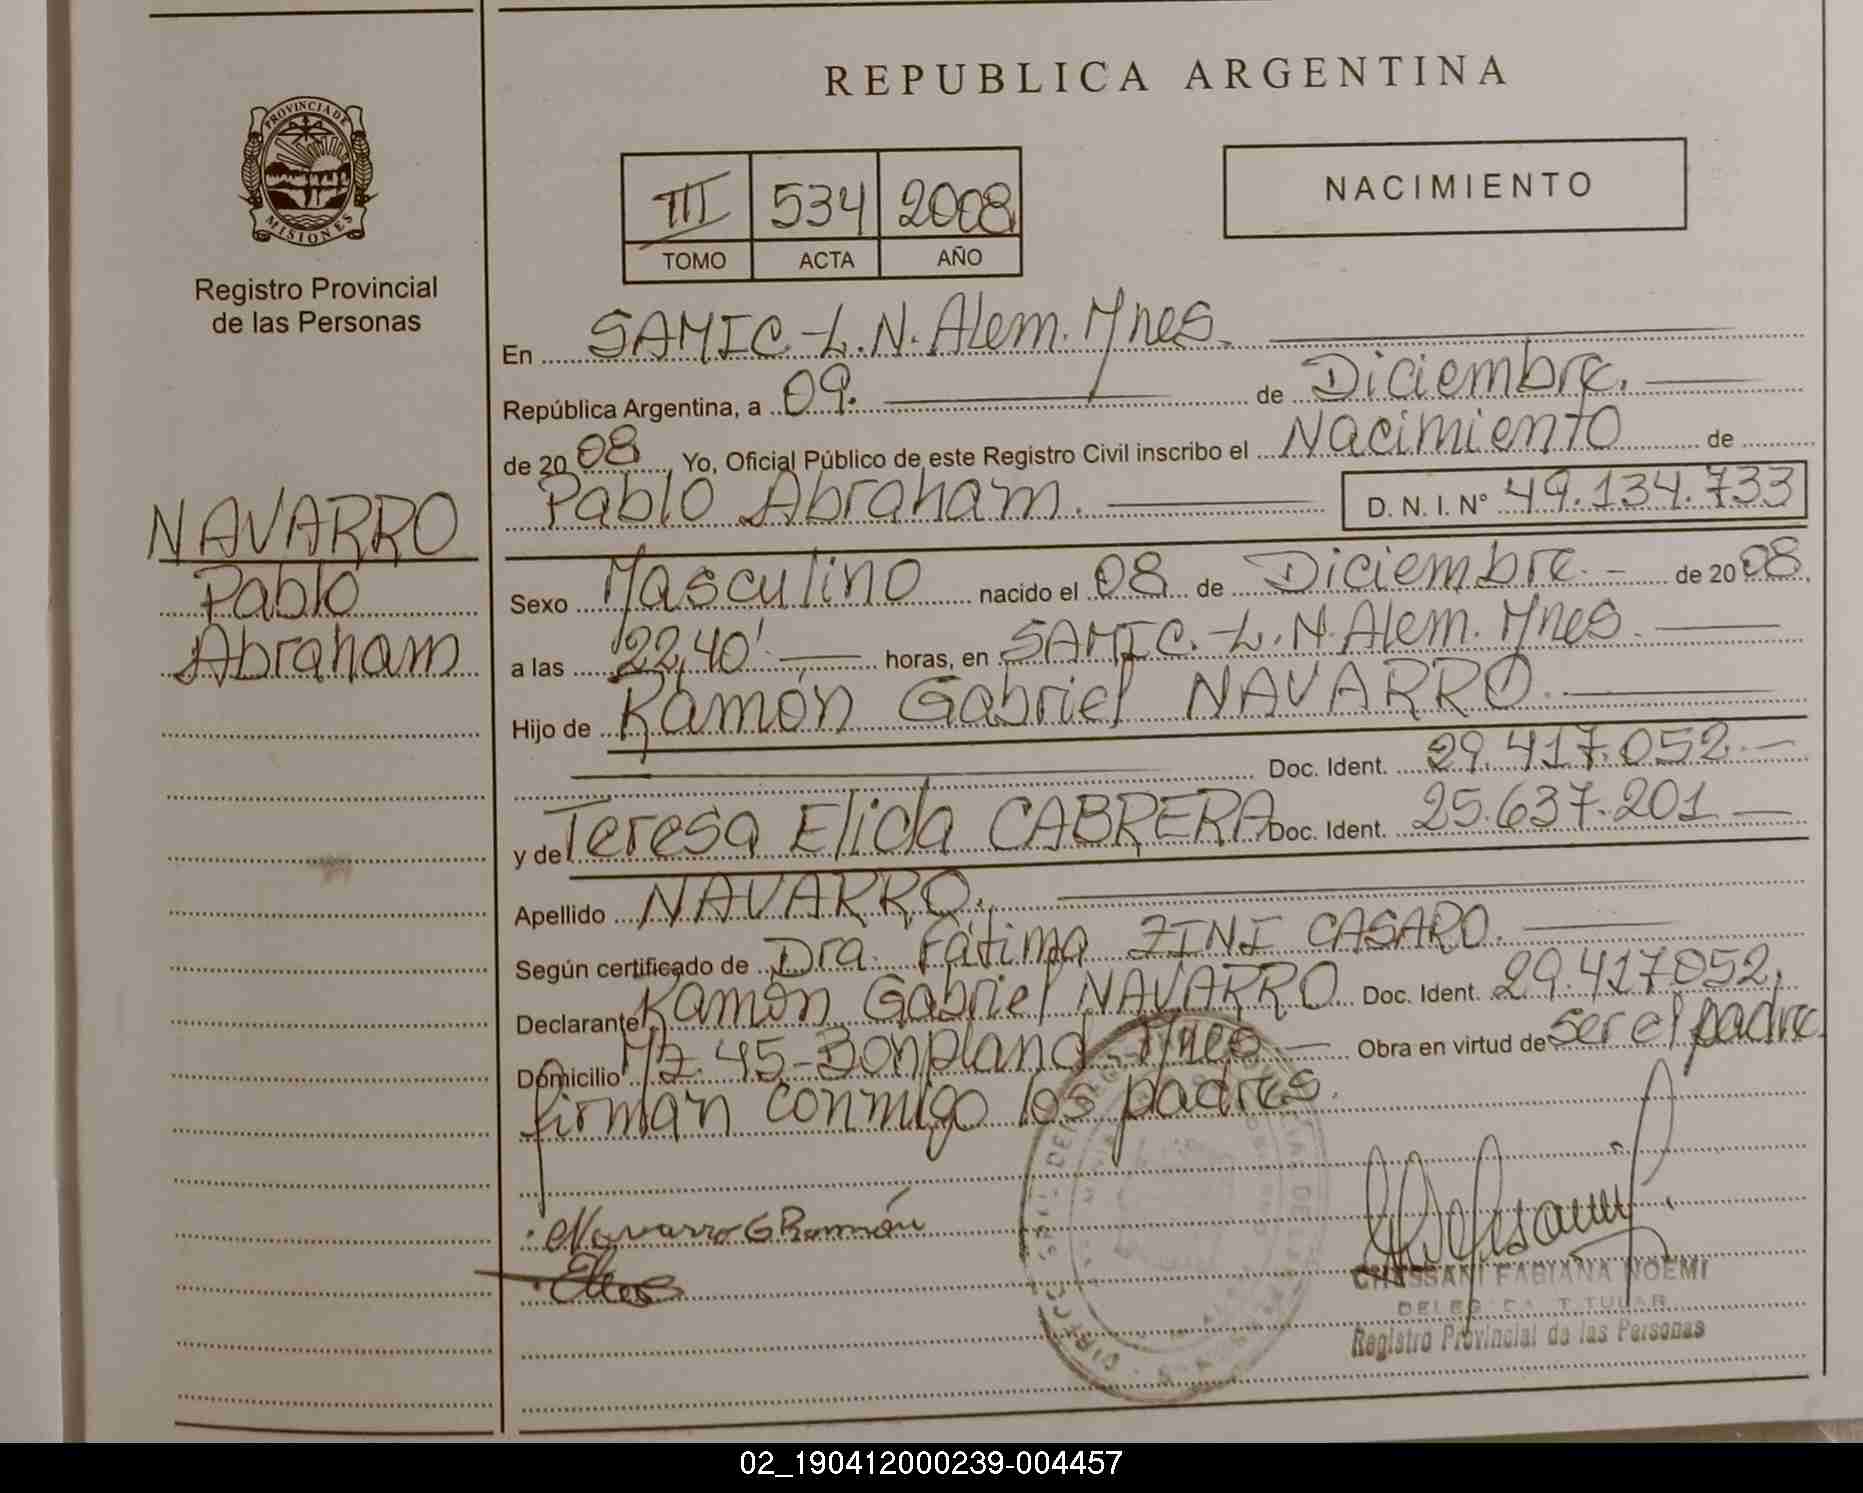 PROVINCIA DE
MISIONES
Registro Provincial
de las Personas
NAVARRO
Pablo
Abraham
REPUBLICA ARGENTINA
III 534 2008
TOMO ACTA AÑO
NACIMIENTO
En SAMIC-L.N.Alem.Mnes.
República Argentina, a 09. de Diciembre.
de 2008 Yo, Oficial Público de este Registro Civil inscribo el Nacimiento de
Pablo Abraham. D. N. I. N° 49.134.733
Sexo Masculino nacido el 08 de Diciembre.- de 2008
a las 22,40' horas, en SAMIC.-L.N.Alem.Mnes.
Hijo de Ramón Gabriel NAVARRO.
Doc. Ident. 29.417.052.-
y de Teresa Elida CABRERA Doc. Ident. 25.637.201-
Apellido NAVARRO.
Según certificado de Dra. Fátima ZINI CASARO.
Declarante Ramón Gabriel NAVARRO Doc. Ident. 29.417052,
Domicilio Mz.45-Bonpland-Mnes.- Obra en virtud de ser el padre
firman conmigo los padres.
Navarro G Ramón
CHESSANI FABIANA NOEMI
DELEGADA TITULAR
Registro Provincial de las Personas
02_190412000239-004457